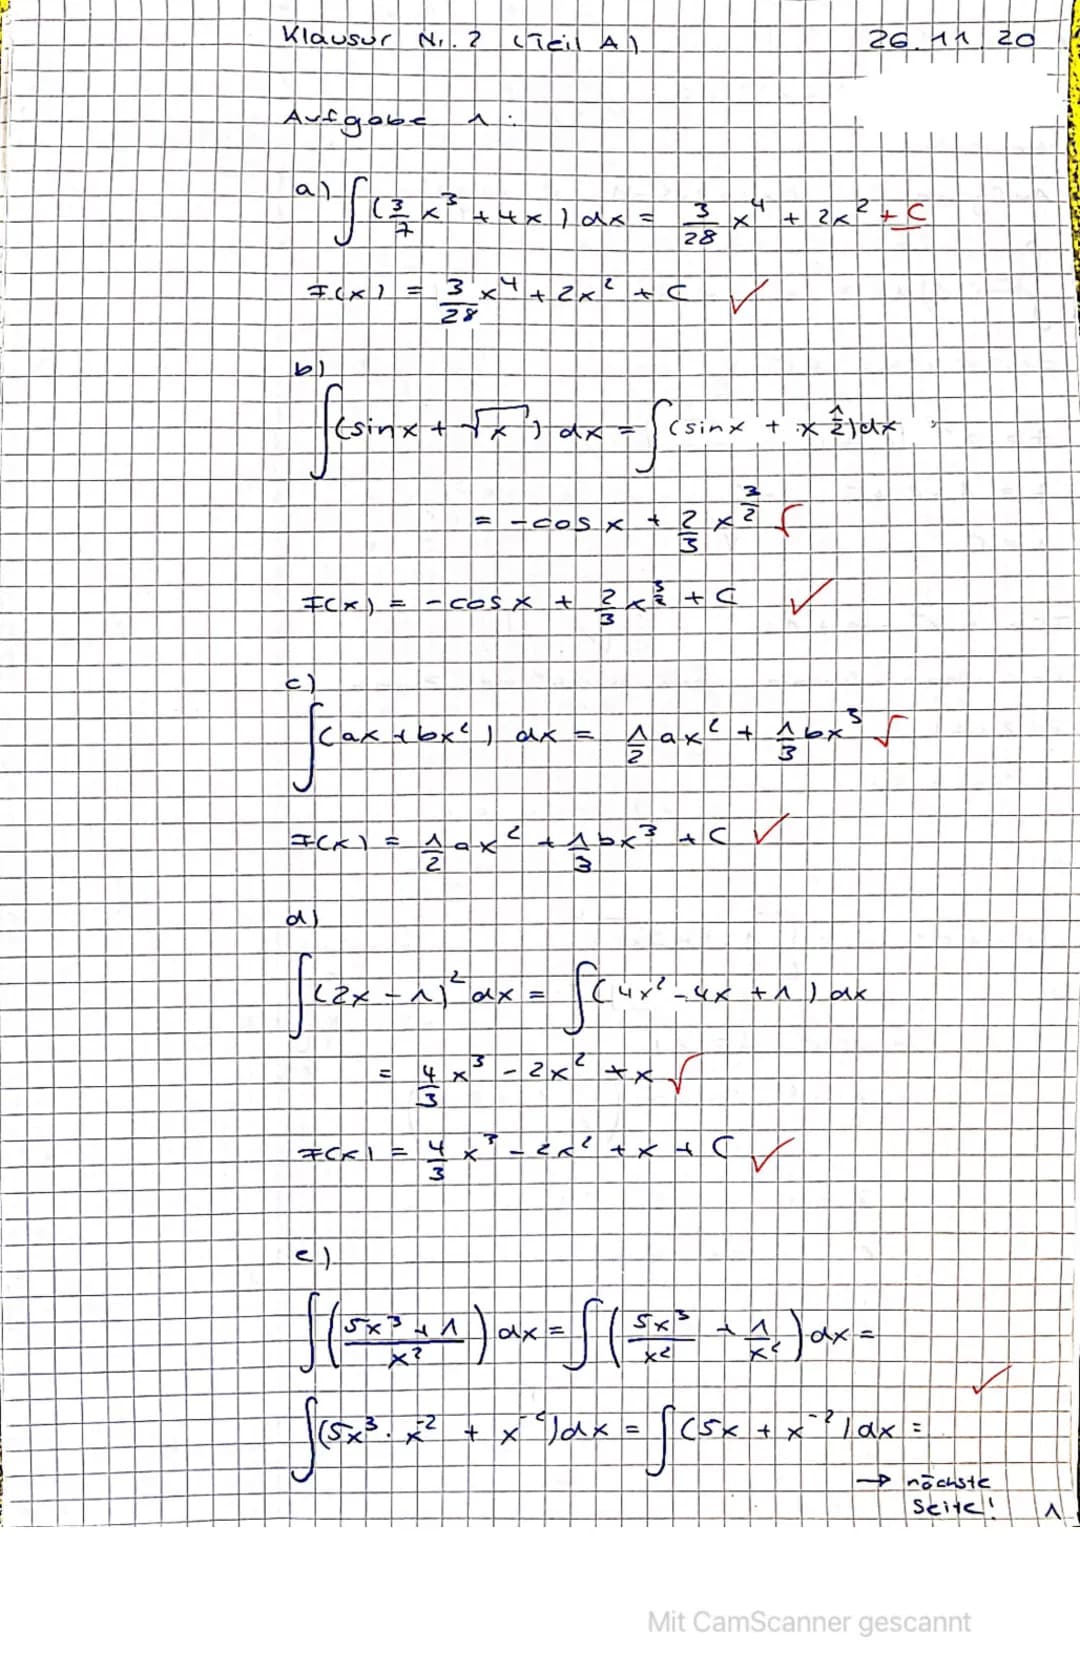 Klausur Nr. 2 (Teil A) 26.11.20
Aufgabe 1:
a) ∫(3/7 x³ + 4x) dx = 3/28 x⁴ + 2x² + C
F(x) = 3/28 x⁴ + 2x² + C ✓
b)
∫(sinx + √x) dx = ∫(sinx + x^(1/2)) dx
= -cos x + 2/3 x^(3/2) √
F(x) = -cos x + 2/3 x^(3/2) + C ✓
c)
∫(ax + bx²) dx = 1/2 ax² + 1/3 bx³ √
F(x) = 1/2 ax² + 1/3 bx³ + C ✓
d)
∫(2x - 1)² dx = ∫(4x² - 4x + 1) dx
= 4/3 x³ - 2x² + x √
F(x) = 4/3 x³ - 2x² + x + C ✓
e)
∫((5x³ + 1)/x²) dx = ∫(5x³/x² + 1/x²) dx =
∫(5x³ · x⁻² + x⁻²) dx = ∫(5x + x⁻²) dx = ✓
→ nächste
Seite! 1
Mit CamScanner gescannt